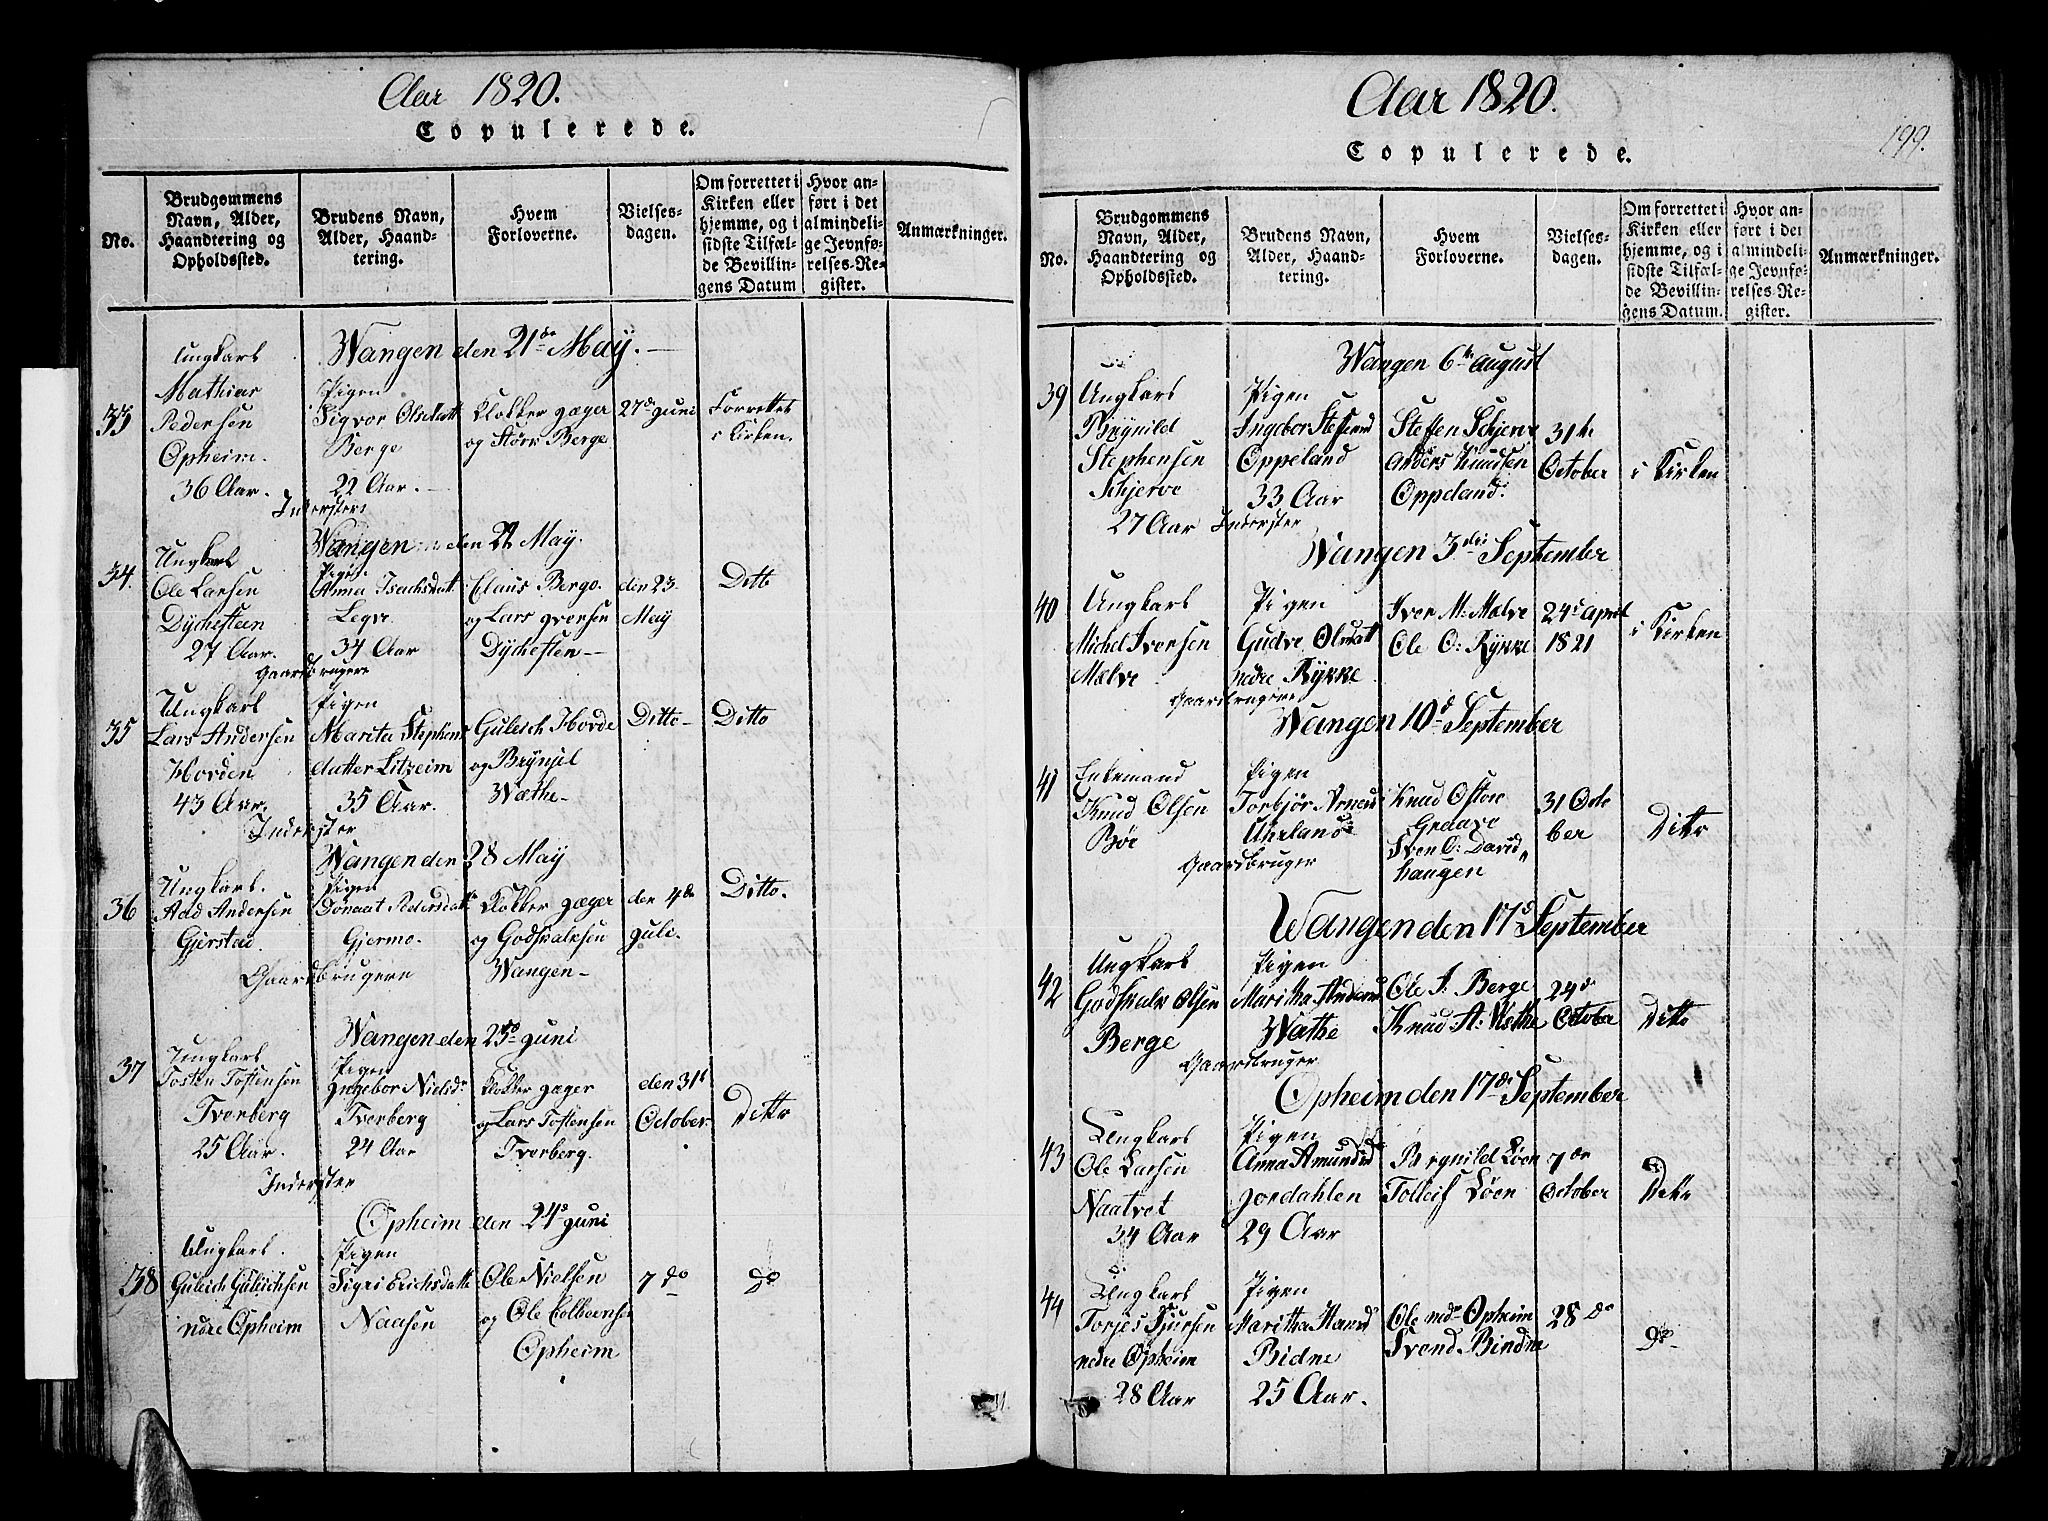 Aar 1820.
Copulerede.
No.
Brudgommens
Navn, Alder,
Haandtering og
Opholdssted.
Brudens Navn,
Alder, Haand-
tering.
Hvem
Forloverne.
Vielses-
dagen.
Om forrettet i
Kirken eller
hjemme, og i
sidste Tilfæl-
de Bevillin-
gens Datum
Hvor an-
ført i det
almindeli-
ge Jevnfø-
relses-Re-
gister.
Anmærkninger.
Wangen den 21de May.
33
Ungkarl
Mathias
Pedersen
Opheim.
36 Aar.
Pigen
Sigvor Olsdatt
Berge
22 Aar.
Klokker Jæger
og Størk Berge
27de Juni
Forrettet
i Kirken.
Inderster
Wangen den 22 May.
34
Ungkarl
Ole Larsen
Dychesteen
27 Aar.
Pigen
Anna Isachsdatt
Legve
34 Aar
Claus Berge
og Lars Iversen
Dychesten
den 23
May
Ditto
Gaardbrugere
35
Ungkarl
Lars Andersen
Horden
43 Aar.
Pigen
Marita Stephens
datter Litzeim
35 Aar.
Gulleich Horde
og Brynjel
Wæthe
Ditto
Ditto
Inderster
Wangen den 28 May
36
Ungkarl.
Aad Andersen
Gjerstad.
Pigen
Donaat Pedersdatt
Gjermo.
Klokker Jæger
og Godskalksen
Wangen
den 4de
Juli.
Ditto.
Gaardbrugere
Wangen den 25de Juni
37
Ungkarl
Tosten Tostensen
Tverberg
25 Aar.
Pigen
Ingebor Nielsdr
Tverberg
24 Aar
Klokker Jæger
og Lars Tostensen
Tverberg.
den 31t
October.
Ditto
Inderster
Opheim den 24de Juni
38
Ungkarl.
Guleich Guleichsen
nedre Opheim
Pigen
Sigri Erichsdatte
Naasen
Ole Nielsen
og Ole Colbeensen
Opheim
7 do
Do
Aar 1820.
199.
Copulerede.
No.
Brudgommens
Navn, Alder,
Haandtering og
Opholdssted.
Brudens Navn,
Alder, Haand-
tering.
Hvem
Forloverne.
Vielses-
dagen.
Om forrettet i
Kirken eller
hjemme, og i
sidste Tilfæl-
de Bevillin-
gens Datum.
Hvor an-
ført i det
almindeli-
ge Jevnfø-
relses-Re-
gister.
Anmærkninger.
Wangen 6te August
39
Ungkarl
Brynild
Stephensen
Schjerve
27 Aar
Pigen
Ingebor Steffensd
Oppeland
33 Aar
Steffen Schjerve
Anders Knudsen
Oppeland.
31te
October
i Kirken
Inderster
Wangen 3die September
40
Ungkarl
Michel Iversen
Mælve
Pigen
Gudve Olsdatt
nedre Rykke
Iver M: Mælve
Ole O: Rykke
24de April
1821
i Kirken
Gaardbrugere
Wangen 10de September
41
Enkemand
Knud Olsen
Bøe
Pigen
Torbjør Arnesd
Uhrland
Knud Ofton
Graave
Sven O: David
haugen
31 Octo
ber
Ditto
Gaardbruger
Wangen den 17de September
42
Ungkarl
Godskalk Olsen
Berge
Pigen
Maritha Andersd
Wæthe
Ole I: Berge
Knud A: Wæthe
24de
October
Ditto
Gaardbruger
Opheim den 17de September
43
Ungkarl
Ole Larsen
Naatvet
34 Aar
Pigen
Anna Amundsd
Jordahlen
29 Aar
Brynild Løen
Tolleif Løen
7de
October
Ditto
44
Ungkarl
Torjes Sjursen
nedre Opheim
28 Aar
Pigen
Maritha Haavd
Bidne
25 Aar.
Ole ned Opheim
Svend Bindne
28 do
Do